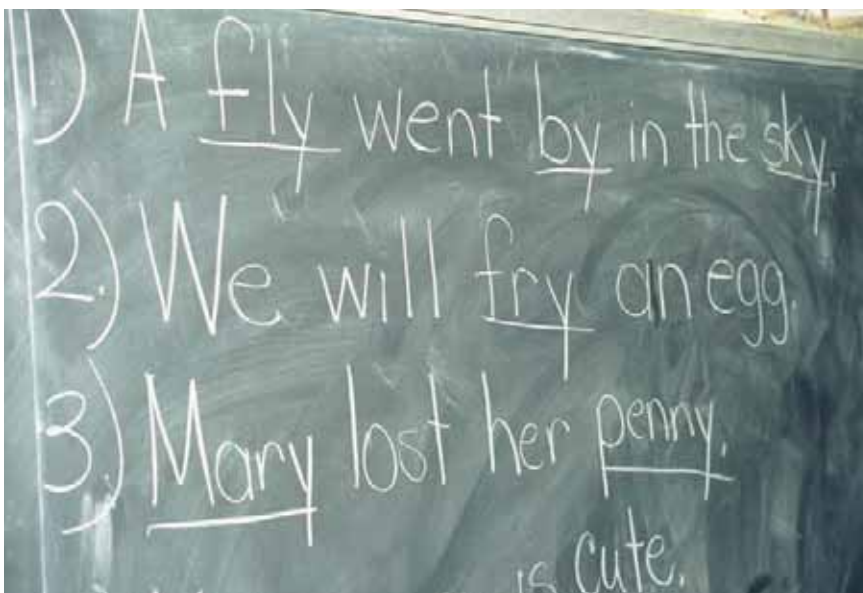 1) A fly went by in the sky.
2.) We will fry an egg.
3.) Mary lost her penny.
is cute.